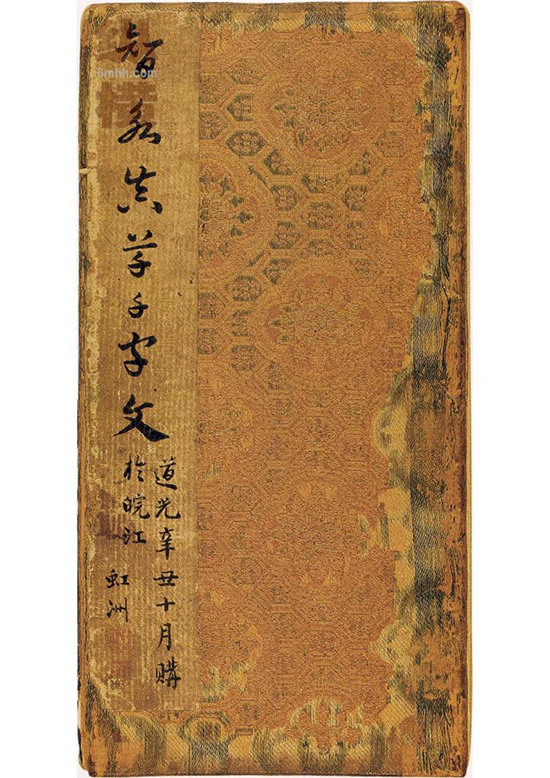 智永真草千字文
道光辛丑十月購
於皖江 虹洲